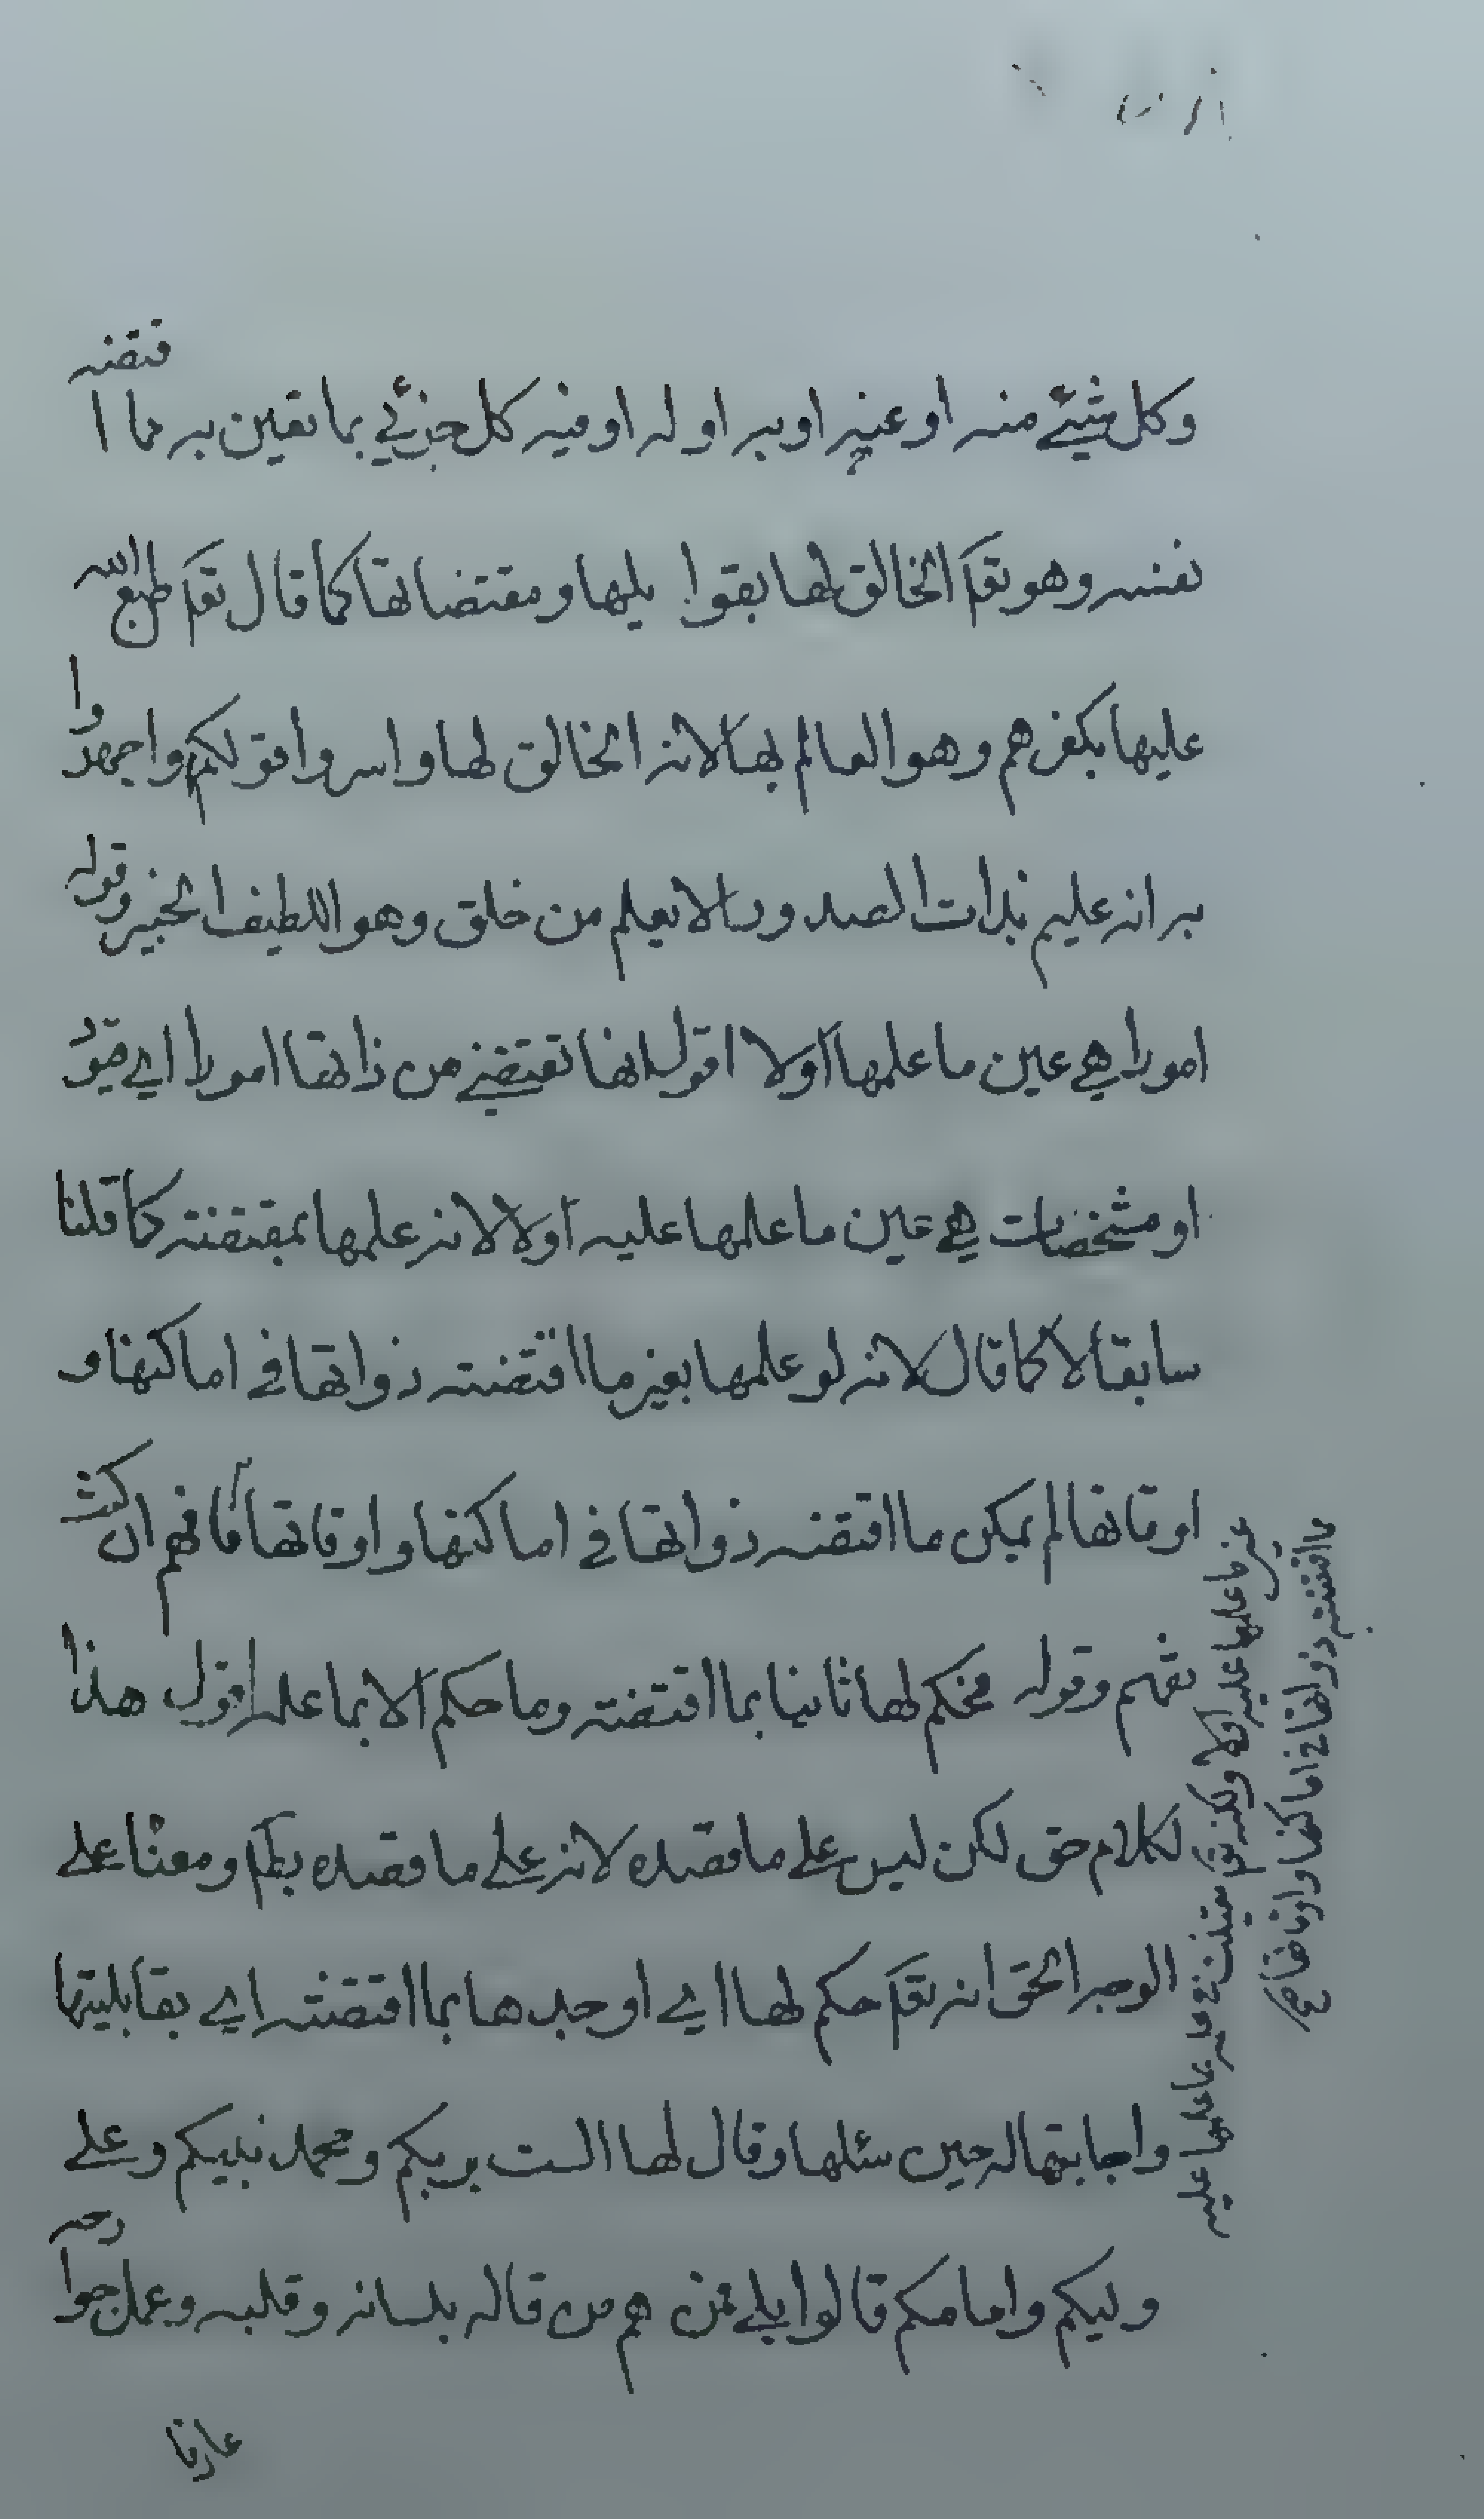 وكل شيئ منه او عنه او به او له او فيه كل جزئي بما تعين به مما اقتضته
نفسه وهو تعا الخالق لها بقوابلها ومقتضاتها كما قال تعا طبع الله
عليها بكفرهم وهو العالم بها لانه الخالق لها واسروا قولكم او اجهروا
به انه عليم بذات الصدور الا يعلم من خلق وهو اللطيف الخبير وقوله
امورا هي عين ما علمها اولا اقول انها تقتضي من ذاتها امورا اي قيود
او مشخصات هي عين ما علمها عليه اولا لانه علمها بمقتضته كما قلنا
سابقا لا كما قال لانه لو علمها بغير ما اقتضته ذواتها في اماكنها و
اوقاتها لم يكن ما اقتضته ذواتها في اماكنها واوقاتها فافهم ان كنت
تفهم وقوله فحكم لها ثانيا بما اقتضته وما حكم الا بما علمه اقول هذا
لكلام حق لكن ليس على ما قصده لانه على ما قصده بط ومعناه على
الوجه الحق انه تعا حكم لها اي اوجدها بما اقتضته اي بقابليتها
واجابتها له حين سئلها وقال لها الست بربكم ومحمد نبيكم وعلي
وليكم وامامكم قالوا بلى فمنهم من قاله بلسانه وقلبه وعمل جوارحه
عارفا
غير ما علمها عليه
ما اقتضته ذواتها في اماكنها واوقاتها صح